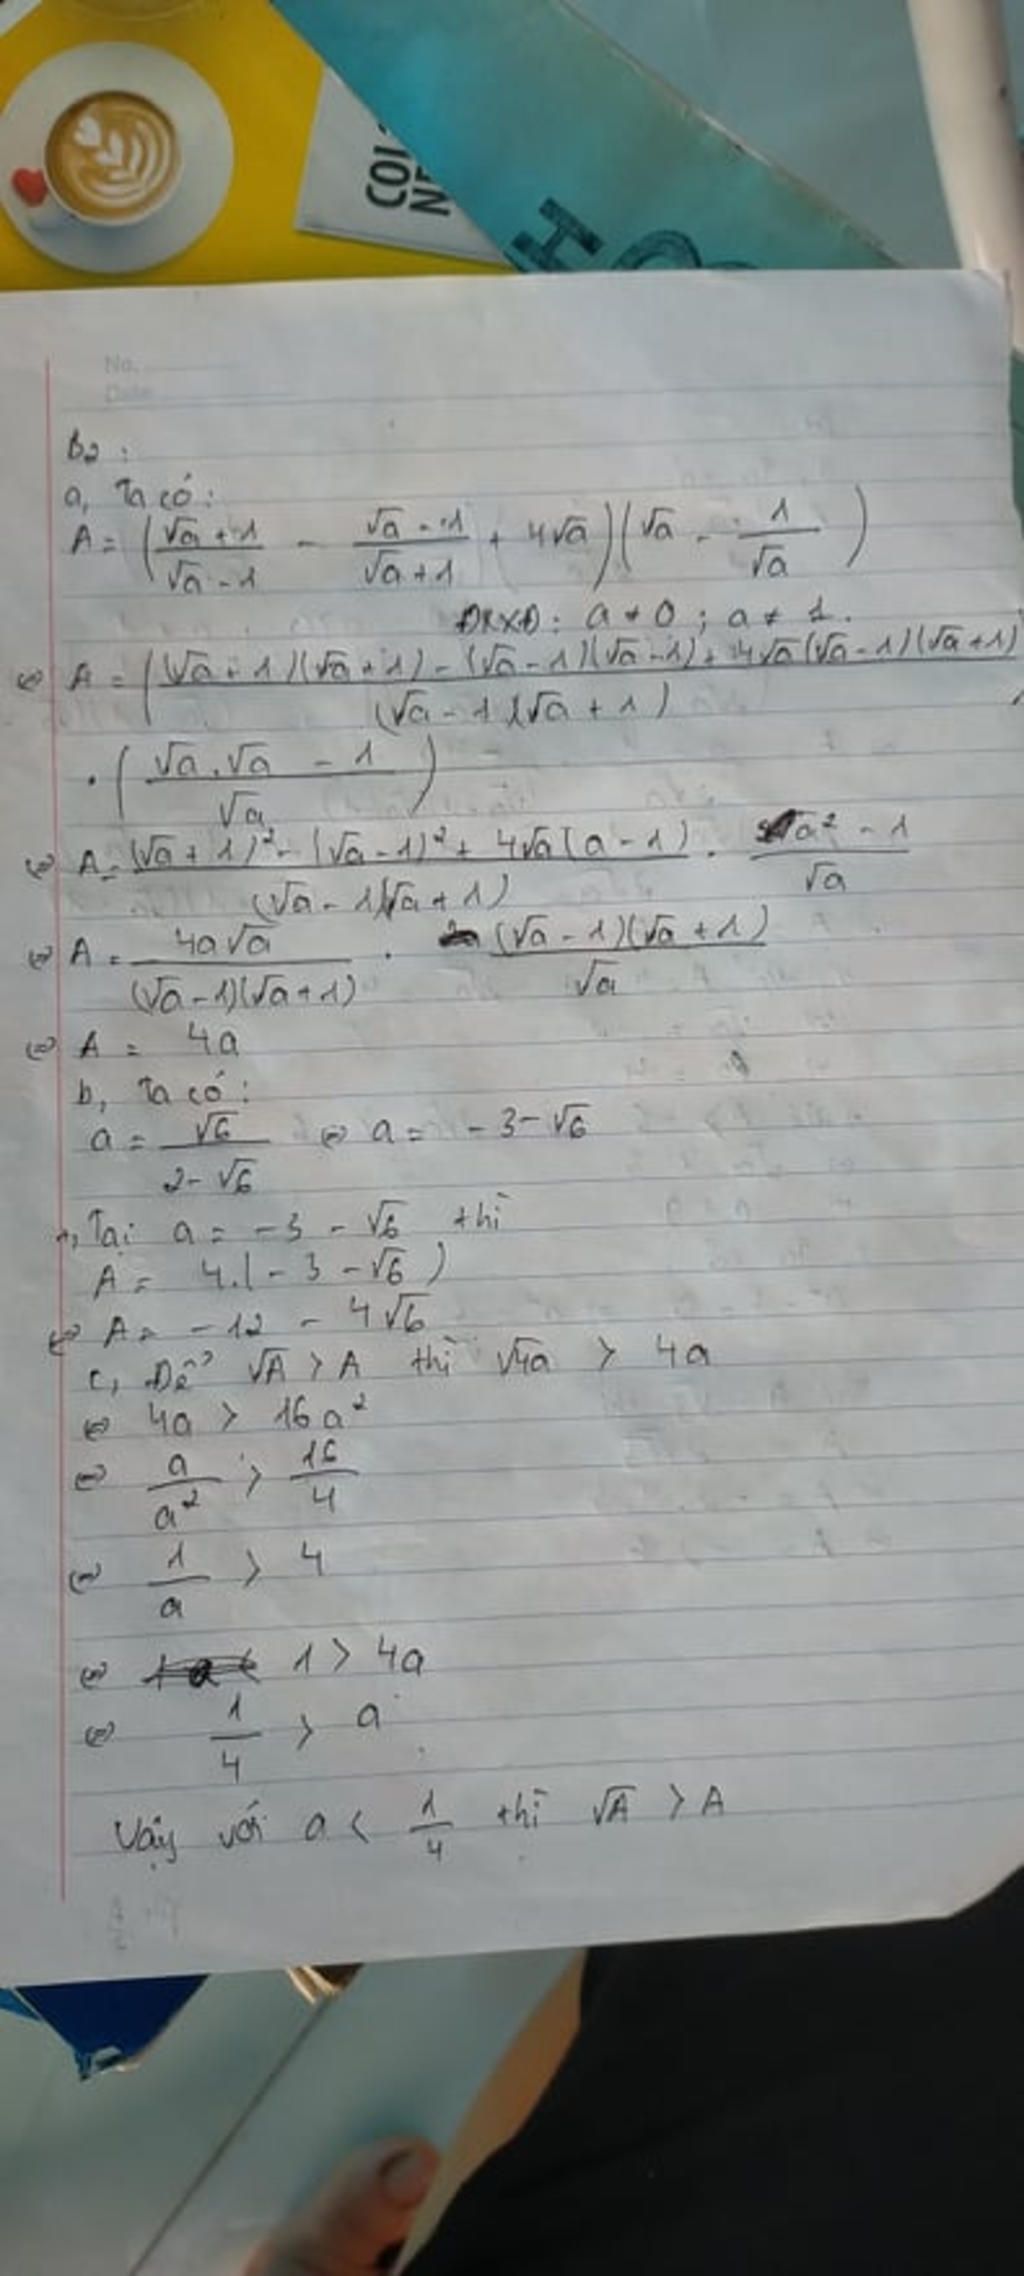 COL
NE
HO
No.
Date
B2 :
a, Ta có:
A = (√a + 1 / √a - 1 - √a - 1 / √a + 1 + 4√a)(√a - 1 / √a)
ĐKXĐ: a ≠ 0 ; a ≠ 1.
⇔ A = ((√a + 1)(√a + 1) - (√a - 1)(√a - 1) + 4√a(√a - 1)(√a + 1) / (√a - 1)(√a + 1))
. (√a.√a - 1 / √a)
⇔ A = (√a + 1)² - (√a - 1)² + 4√a(a - 1) / (√a - 1)(√a + 1) . √a² - 1 / √a
⇔ A = 4a√a / (√a - 1)(√a + 1) . (√a - 1)(√a + 1) / √a
⇔ A = 4a
b, Ta có:
a = √6 / 2 - √6 ⇔ a = - 3 - √6
Tại a = - 3 - √6 thì
A = 4.(- 3 - √6)
⇔ A = - 12 - 4√6
c, Để √A > A thì √4a > 4a
⇔ 4a > 16a²
⇔ a / a² > 16 / 4
⇔ 1 / a > 4
⇔ 1 > 4a
⇔ 1 / 4 > a
Vậy với a < 1 / 4 thì √A > A